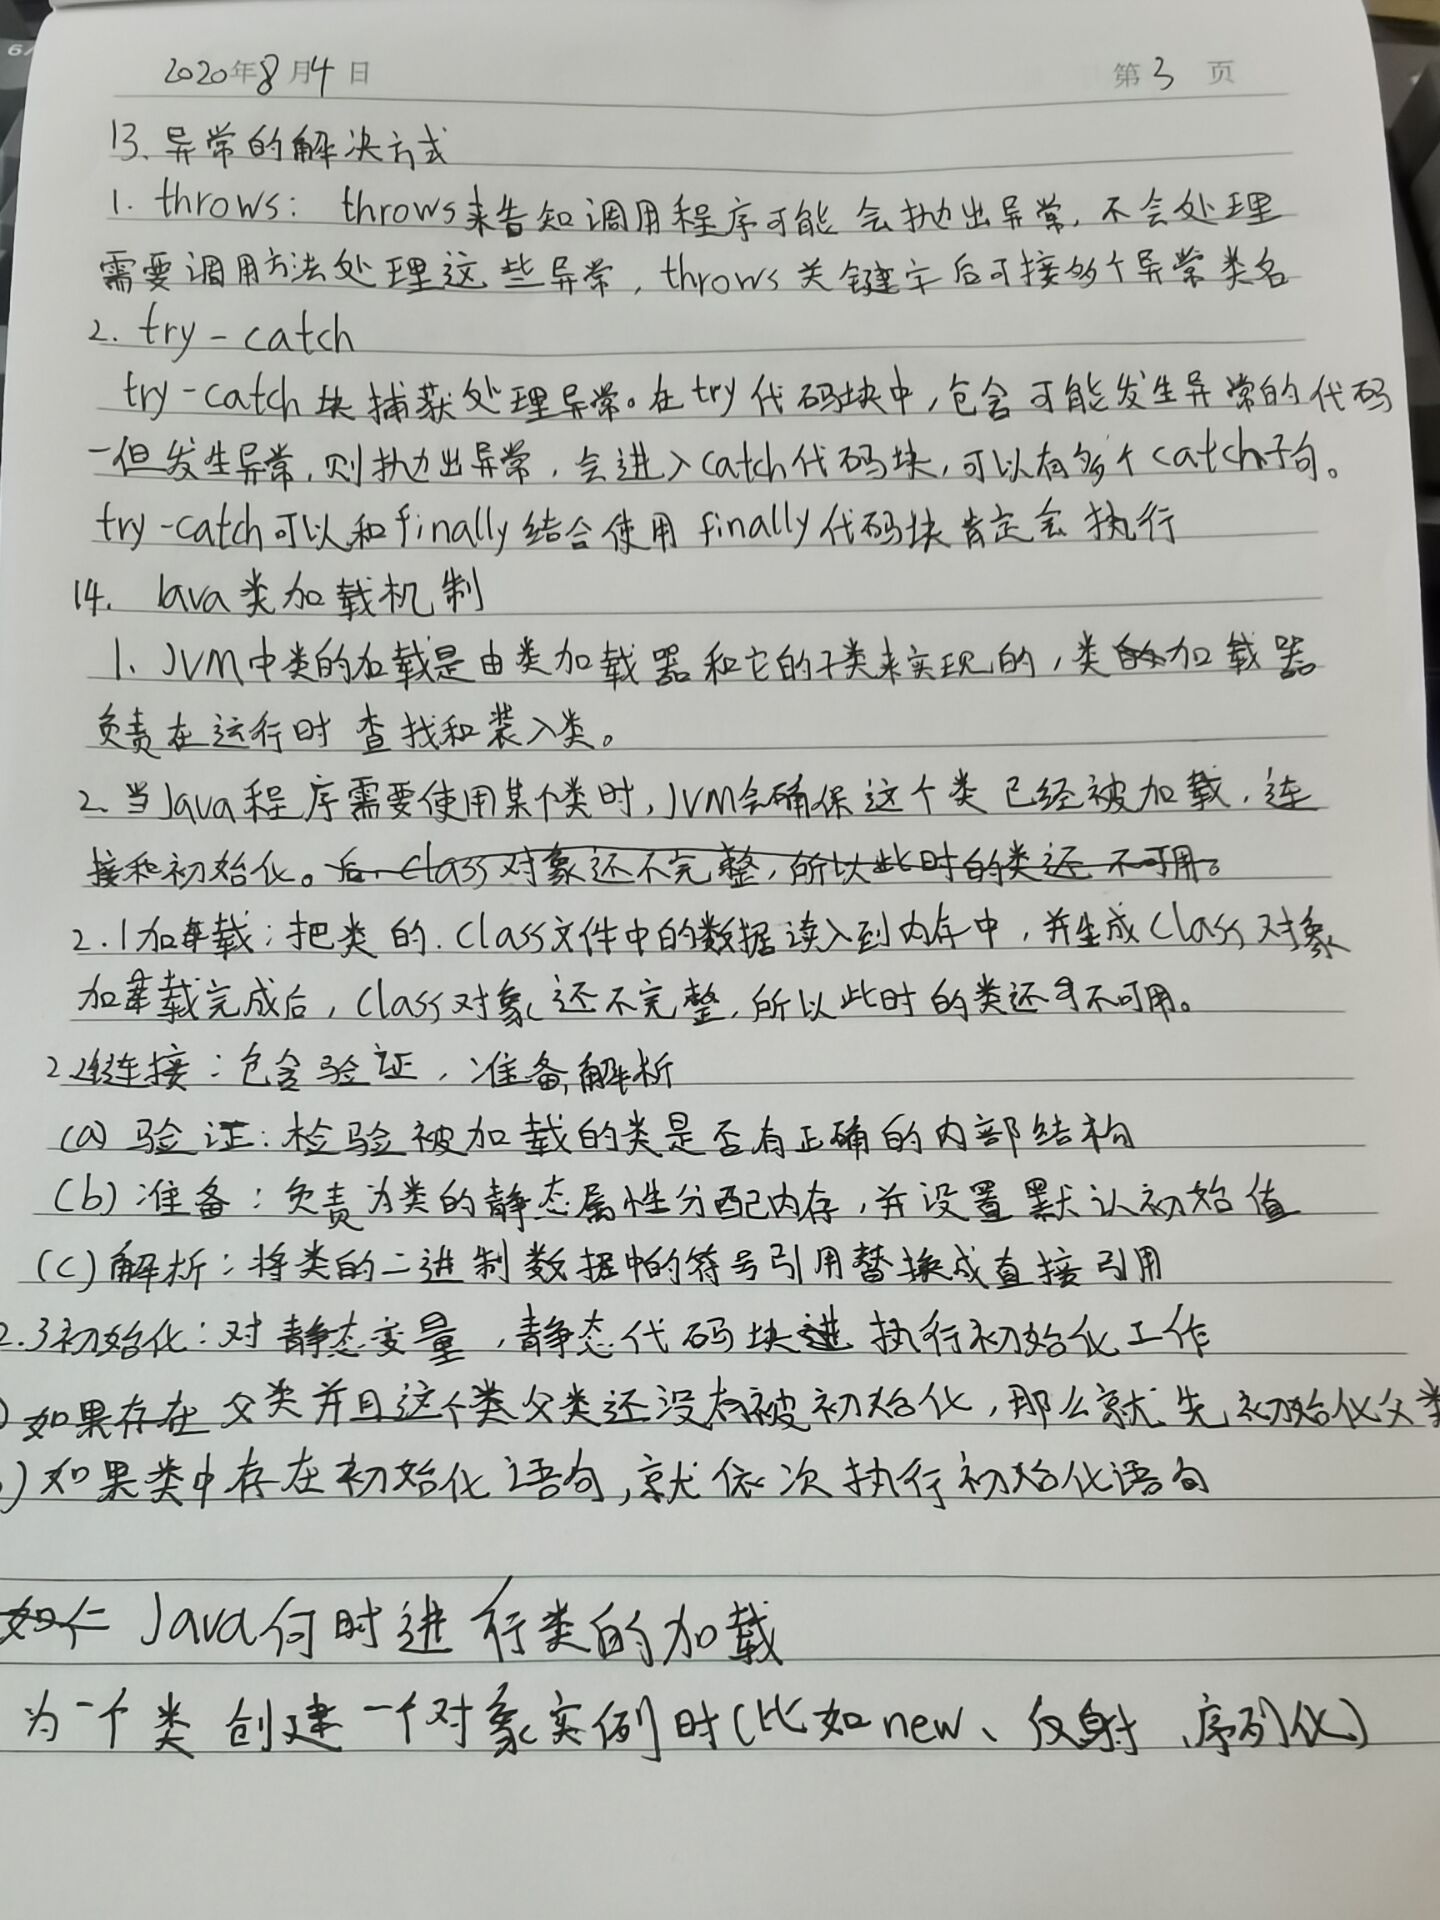 2020年8月4日 第3页
13. 异常的解决方式
1. throws: throws来告知调用程序可能会抛出异常, 不会处理
需要调用方法处理这些异常, throws关键字后可接多个异常类名
2. try-catch
try-catch块捕获处理异常。在try代码块中, 包含可能发生异常的代码
一但发生异常, 则抛出异常, 会进入catch代码块, 可以有多个catch子句。
try-catch可以和finally结合使用 finally代码块肯定会执行
14. Java类加载机制
1. JVM中类的加载是由类加载器和它的子类来实现的, 类加载器
负责在运行时查找和装入类。
2. 当Java程序需要使用某个类时, JVM会确保这个类已经被加载, 连
接和初始化。后, class对象还不完整, 所以此时的类还不可用。
2.1加载: 把类的.class文件中的数据读入到内存中, 并生成Class对象
加载完成后, Class对象还不完整, 所以此时的类还不可用。
2.2连接: 包含验证, 准备, 解析
(a) 验证: 检验被加载的类是否有正确的内部结构
(b) 准备: 负责为类的静态属性分配内存, 并设置默认初始值
(c) 解析: 将类的二进制数据中的符号引用替换成直接引用
2.3初始化: 对静态变量, 静态代码块执行初始化工作
) 如果存在父类并且这个类父类还没有被初始化, 那么就先初始化父类
) 如果类中存在初始化语句, 就依次执行初始化语句
Java何时进行类的加载
为一个类创建一个对象实例时(比如new、反射、序列化)